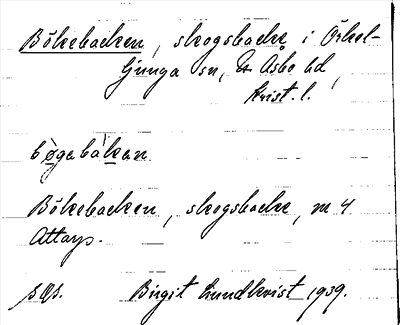 Bökebacken, skogsbacke i Örkel-
ljunga sn, N Åsbo hd,
Krist. l.
bø̀gabàkan
Bökebacken, skogsbacke, m 4
Attarp.
Birgit Lundkvist 1939.